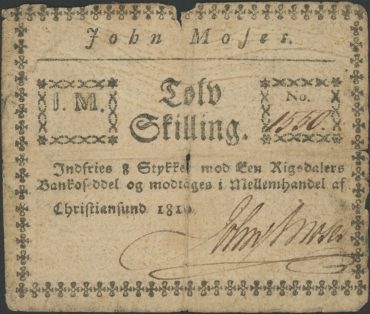 John Moses.
J. M.
Tolv
Skilling.
No.
1550.
Indfries 8 Stykker mod Een Rigsdalers
Bankoseddel og modtages i Mellemhandel af
Christiansund 1810.
John Moses